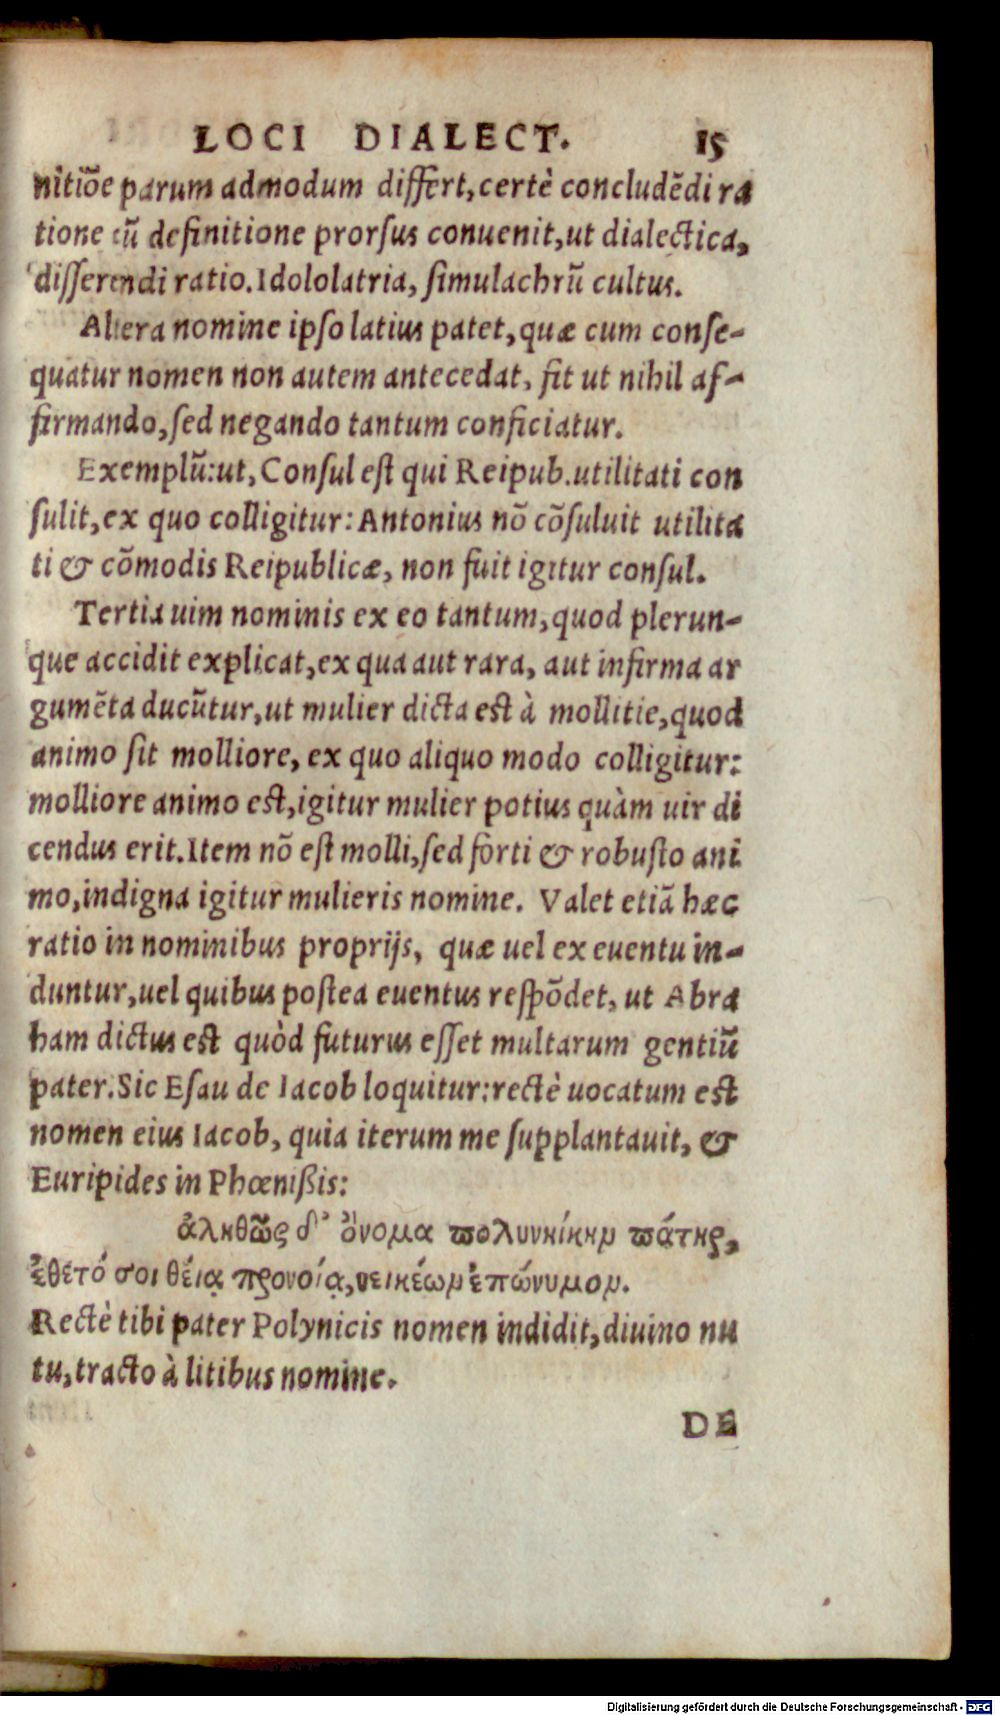 LOCI DIALECT. 15
nitiõe parum admodum differt, certè concludẽdi ra
tione cũ definitione prorsus conuenit, ut dialectica,
disserendi ratio. Idololatria, simulachrũ cultus.
Altera nomine ipso latius patet, quæ cum conse-
quatur nomen non autem antecedat, fit ut nihil af-
firmando, sed negando tantum conficiatur.
Exemplũ: ut, Consul est qui Reipub. utilitati con
sulit, ex quo colligitur: Antonius nõ cõsuluit utilita
ti & cõmodis Reipublicæ, non fuit igitur consul.
Tertia uim nominis ex eo tantum, quod plerun-
que accidit explicat, ex qua aut rara, aut infirma ar
gumẽta ducũtur, ut mulier dicta est à mollitie, quod
animo sit molliore, ex quo aliquo modo colligitur:
molliore animo est, igitur mulier potius quàm uir di
cendus erit. Item nõ est molli, sed forti & robusto ani
mo, indigna igitur mulieris nomine. Valet etiã hæc
ratio in nominibus proprijs, quæ uel ex euentu in-
duntur, uel quibus postea euentus respõdet, ut Abra
ham dictus est quòd futurus esset multarum gentiũ
pater. Sic Esau de Iacob loquitur: rectè uocatum est
nomen eius Iacob, quia iterum me supplantauit, &
Euripides in Phœnißis:
ἀληθῶς δ' ὄνομα πολυνείκην πάτηρ,
ἔθετό σοι θείᾳ προνοίᾳ, νεικέων ἐπώνυμον.
Rectè tibi pater Polynicis nomen indidit, diuino nu
tu, tracto à litibus nomine.
DE
Digitalisierung gefördert durch die Deutsche Forschungsgemeinschaft - DFG